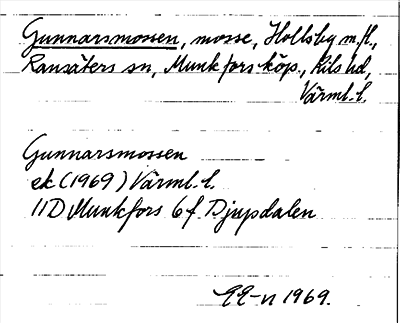 Gunnarsmossen, mosse, Hollsby m.fl.,
Ransäters sn, Munkfors köp., Kils hd,
Värml. l.
Gunnarsmossen
ek (1969) Värml. l.
11D Munkfors 6f Djupdalen
EE-n 1969.